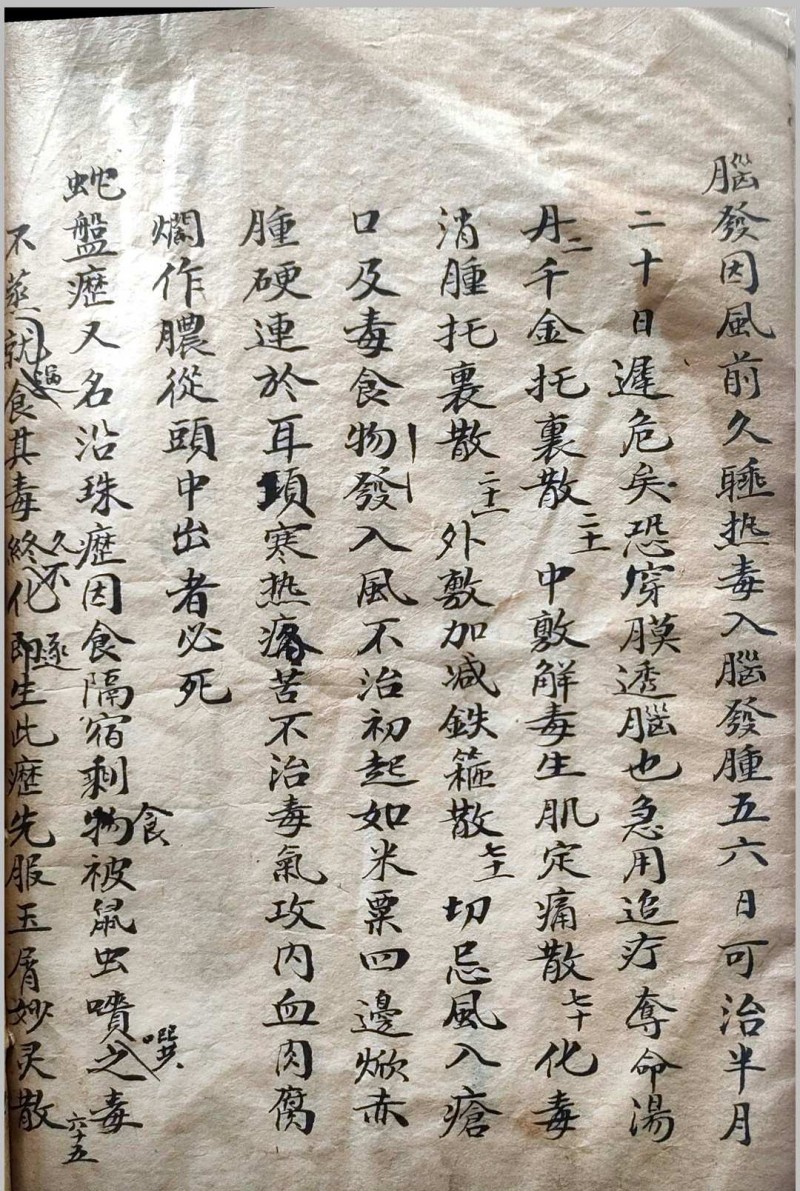 腦發因風前久睡热毒入腦發腫五六日可治半月
二十日遲危矣恐穿膜透腦也急用追疔奪命湯
丹二千金托裏散二十一中敷解毒生肌定痛散七十化毒
消腫托裏散二十一外敷加减鉄箍散七十一切忌風入瘡
口及毒食物發入風不治初起如米粟四邊焮赤
腫硬連於耳項寒热疼苦不治毒氣攻内血肉腐
爛作膿從頭中出者必死
蛇盤癧又名沿珠癧因食隔宿剩物食被鼠虫噴之噀毒
不蒸就食其毒終久不化即逐生此癧先服玉屑妙灵散六十五